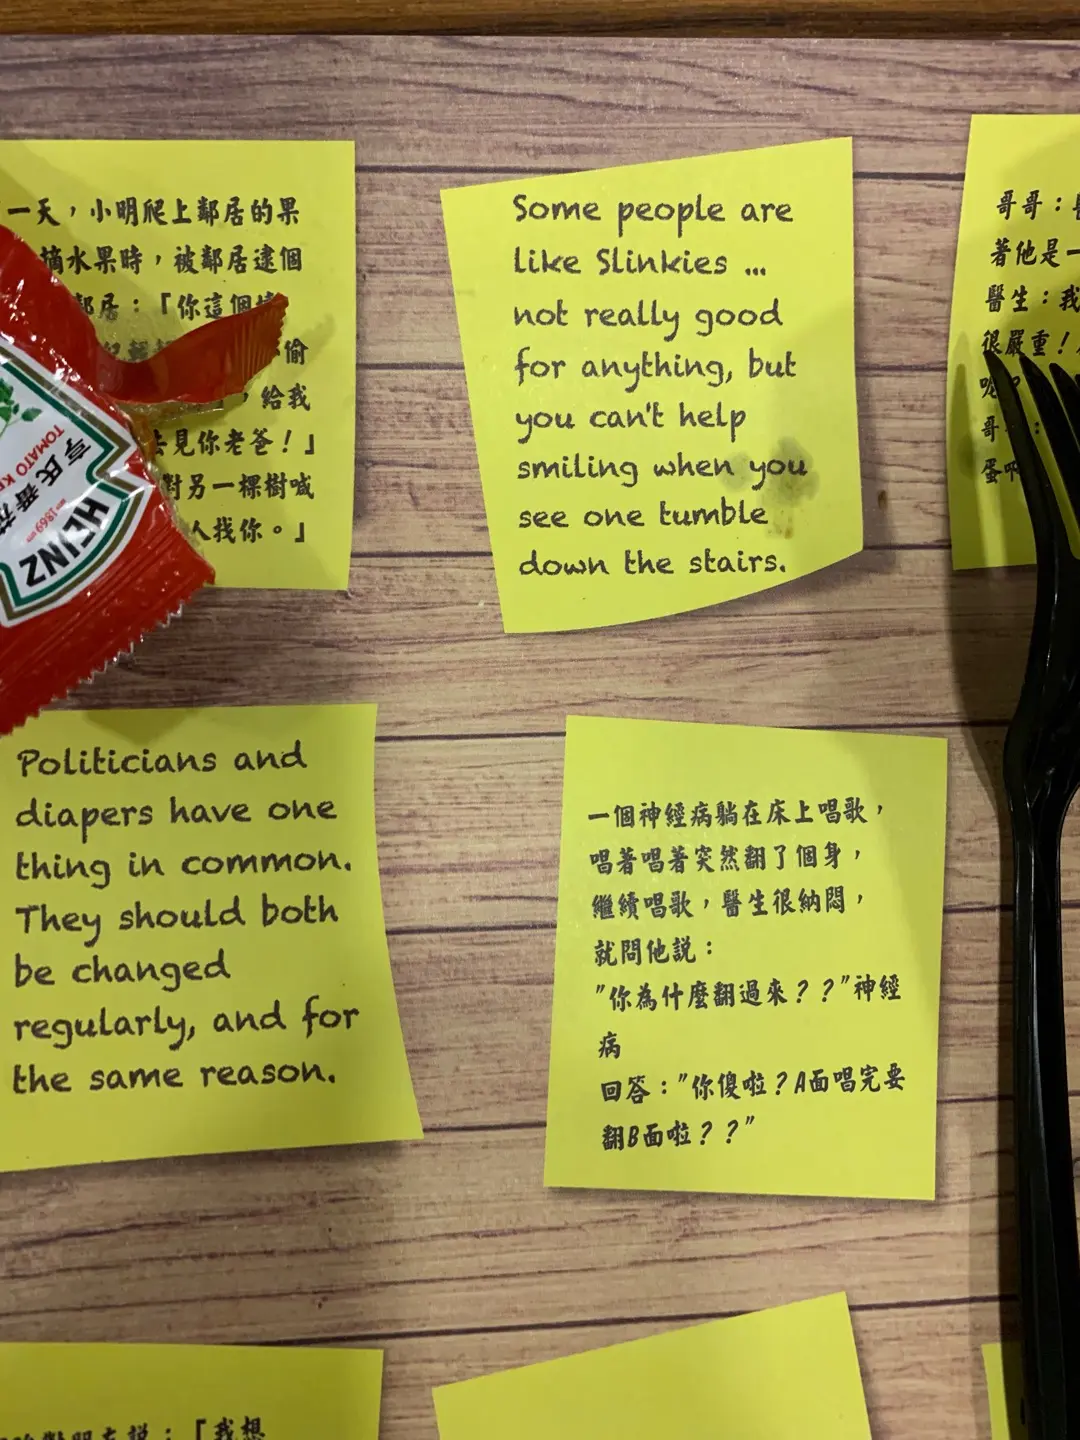 一天，小明爬上鄰居的果
摘水果時，被鄰居逮個
鄰居：「你這個壞
偷
，給我
去見你老爸！」
對另一棵樹喊
人找你。」
TOMATO
亨氏番
1869
HEINZ
Some people are
like Slinkies ...
not really good
for anything, but
you can't help
smiling when you
see one tumble
down the stairs.
哥哥：
著他是一
醫生：我
很嚴重！
呢？
哥
：
蛋啊
Politicians and
diapers have one
thing in common.
They should both
be changed
regularly, and for
the same reason.
一個神經病躺在床上唱歌，
唱著唱著突然翻了個身，
繼續唱歌，醫生很納悶，
就問他說：
"你為什麼翻過來？？"神經
病
回答："你傻啦？A面唱完要
翻B面啦？？"
說：「我想